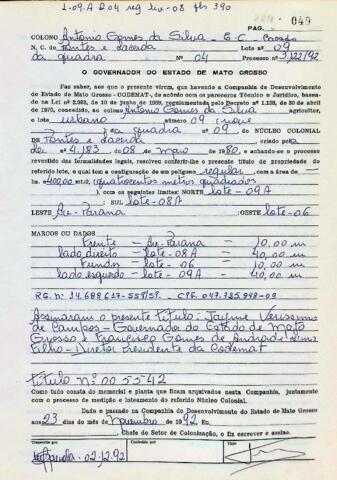 1-09.A R04 reg liv-08 fls 390
PAG. 049
COLONO Antonio Gomes da Silva - E.C. Casado
N. C. de Pontes e Lacerda Lote n.º 09
da quadra N.º 04 Processo n.º 3.122/92
O GOVERNADOR DO ESTADO DE MATO GROSSO
Faz saber, aos que o presente virem, que havendo a Companhia de Desenvolvimento
do Estado de Mato Grosso - CODEMAT-, de acôrdo com os pareceres Técnico e Jurídico, basea-
do na Lei n.º 2.923, de 10 de Junho de 1969, regulamentada pelo Decreto n.º 1.138, de 30 de abril
de 1970, concedido, ao colono Antonio Gomes da Silva agricultor,
o lote urbano número 09 (nove
) da quadra n.º 09, DO NÚCLEO COLONIAL
DE Pontes e Lacerda criado pela
Lei n.º 4.183, de 08 de maio de 1980, e achando-se o processo
revestido das formalidades legais, resolveu conferir-lhe o presente título de propriedade do
referido lote, o qual tem a configuração de um polígono regular com a área de —
ha. 400,00 m2 (quatrocentos metros quadrados
) com os seguintes limites: NORTE lote-09A
: SUL lote-08A
LESTE Av-Paraná : OESTE lote-06
MARCOS OU DADOS
frente - Av-Paraná - 10,00 m
lado direito - lote-08A - 40,00 m
fundos - lote-06 - 10,00 m
lado esquerdo - lote-09A - 40,00 m
RG. n.º 14.688.617-SSP/SP. - CPF. 047.725.948-09
Assinaram o presente título: Jayme Verissimo
de Campos - Governador do Estado de Mato
Grosso e Francisco Gomes de Andrade Lima
Filho - Diretor Presidente da Codemat
Título n.º 005542
Como tudo consta do memorial e planta que ficam arquivados nesta Companhia, juntamente
com o processo de medição e loteamento do referido Núcleo Colonial.
Dado e passado na Companhia de Desenvolvimento do Estado de Mato Grosso
aos 23 dias do mês de novembro de 1992. Eu
Chefe do Setor de Colonização, o fiz escrever e assino.
Transcrito por Conferido por Visto
02.12.92